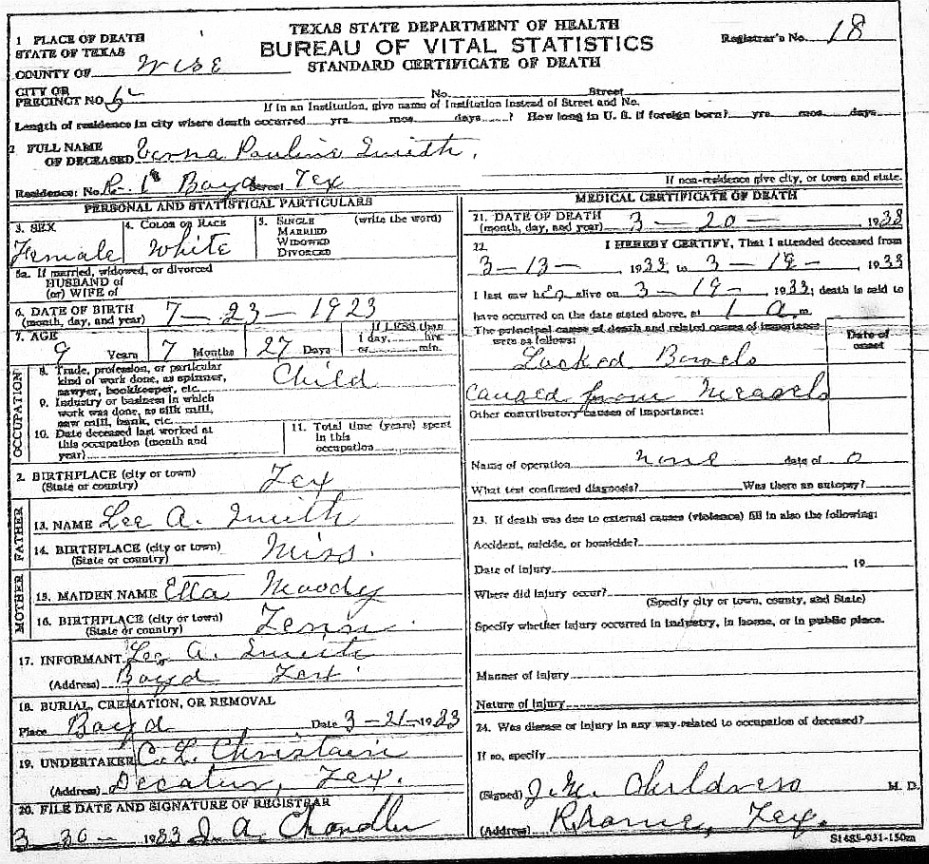 TEXAS STATE DEPARTMENT OF HEALTH
BUREAU OF VITAL STATISTICS
STANDARD CERTIFICATE OF DEATH
Registrar's No. 18
1 PLACE OF DEATH
STATE OF TEXAS
COUNTY OF Wise
CITY OR
PRECINCT NO. No. Street
If in an Institution, give name of Institution instead of Street and No.
Length of residence in city where death occurred yrs. mos. days ? How long in U. S. if foreign born? yrs. mos. days
2 FULL NAME
OF DECEASED Verna Pauline Smith,
Residence: No. R. 1 Boyd Street Tex
If non-residence give city, or town and state.
PERSONAL AND STATISTICAL PARTICULARS
3. SEX Female
4. COLOR OR RACE White
5. SINGLE (write the word)
MARRIED
WIDOWED
DIVORCED
5a. If married, widowed, or divorced
HUSBAND OF
(or) WIFE OF
6. DATE OF BIRTH
(month, day, and year) 7-23-1923
7. AGE
9 Years 7 Months 27 Days
If LESS than
1 day, hrs.
or min.
OCCUPATION
8. Trade, profession, or particular
kind of work done, as spinner,
sawyer, bookkeeper, etc. Child
9. Industry or business in which
work was done, as silk mill,
saw mill, bank, etc.
10. Date deceased last worked at
this occupation (month and
year)
11. Total time (years) spent
in this
occupation
2. BIRTHPLACE (city or town)
(State or country) Tex
FATHER
13. NAME Lee A. Smith
14. BIRTHPLACE (city or town)
(State or country) Miss.
MOTHER
15. MAIDEN NAME Etta Moody
16. BIRTHPLACE (city or town)
(State or country) Tenn.
17. INFORMANT Lee A. Smith
(Address) Boyd Tex
18. BURIAL, CREMATION, OR REMOVAL
Place Boyd Date 3-21-1933
19. UNDERTAKER C. L. Christian
(Address) Decatur, Tex.
20. FILE DATE AND SIGNATURE OF REGISTRAR
3-30-1933 J. A. Chandler
MEDICAL CERTIFICATE OF DEATH
21. DATE OF DEATH
(month, day, and year) 3-20-1933
22. I HEREBY CERTIFY, That I attended deceased from
3-13-1933, to 3-19-1933
I last saw her alive on 3-19-1933; death is said to
have occurred on the date stated above, at 1 a m.
The principal cause of death and related causes of importance
were as follows:
Date of
onset
Locked Bowels
Caused from Measels
Other contributory causes of importance:
Name of operation none date of 0
What test confirmed diagnosis? Was there an autopsy?
23. If death was due to external causes (violence) fill in also the following:
Accident, suicide, or homicide?
Date of injury 19
Where did injury occur?
(Specify city or town, county, and State)
Specify whether injury occurred in industry, in home, or in public place.
Manner of injury
Nature of injury
24. Was disease or injury in any way related to occupation of deceased?
If so, specify
(Signed) Childress M. D.
(Address) Rhome, Tex.
S1485-931-150m